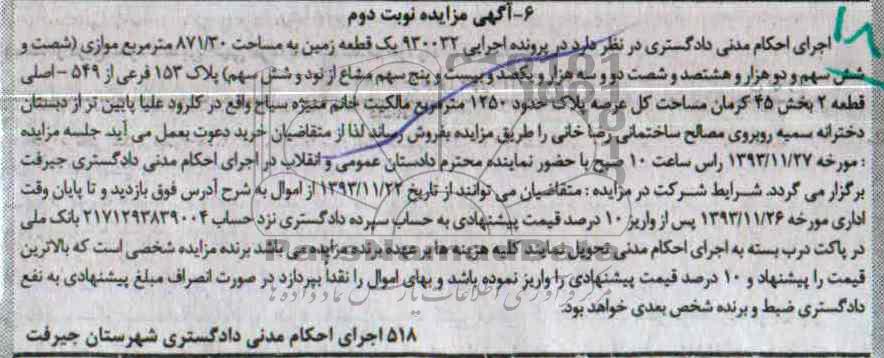 ۶-آگهی مزایده نوبت دوم
اجرای احکام مدنی دادگستری در نظر دارد در پرونده اجرایی ۹۳۰۰۳۲ یک قطعه زمین به مساحت ۸۷۱/۳۰ مترمربع موازی (شصت و
شش سهم و دو هزار و هشتصد و شصت دو و سه هزار و یکصد و بیست و پنج سهم مشاع از نود و شش سهم) پلاک ۱۵۳ فرعی از ۵۴۹ -اصلی
قطعه ۲ بخش ۴۵ کرمان مساحت کل عرصه پلاک حدود ۱۲۵۰ مترمربع مالکیت خانم منیژه سیاح واقع در کلرود علیا پایین تر از دبستان
دخترانه سمیه روبروی مصالح ساختمانی رضا خانی را طریق مزایده بفروش رساند لذا از متقاضیان خرید دعوت بعمل می آید. جلسه مزایده
: مورخه ۱۳۹۳/۱۱/۲۷ راس ساعت ۱۰ صبح با حضور نماینده محترم دادستان عمومی و انقلاب در اجرای احکام مدنی دادگستری جیرفت
برگزار می گردد. شرایط شرکت در مزایده : متقاضیان می توانند از تاریخ ۱۳۹۳/۱۱/۲۲ از اموال به شرح آدرس فوق بازدید و تا پایان وقت
اداری مورخه ۱۳۹۳/۱۱/۲۶ پس از واریز ۱۰ درصد قیمت پیشنهادی به حساب سپرده دادگستری نزد حساب ۲۱۷۱۲۹۳۸۳۹۰۰۴ بانک ملی
در پاکت درب بسته به اجرای احکام مدنی تحویل نمایند. کلیه هزینه ها بر عهده برنده مزایده می باشد برنده مزایده شخصی است که بالاترین
قیمت را پیشنهاد و ۱۰ درصد قیمت پیشنهادی را واریز نموده باشد و بهای اموال را نقداً بپردازد در صورت انصراف مبلغ پیشنهادی به نفع
دادگستری ضبط و برنده شخص بعدی خواهد بود.
۵۱۸ اجرای احکام مدنی دادگستری شهرستان جیرفت